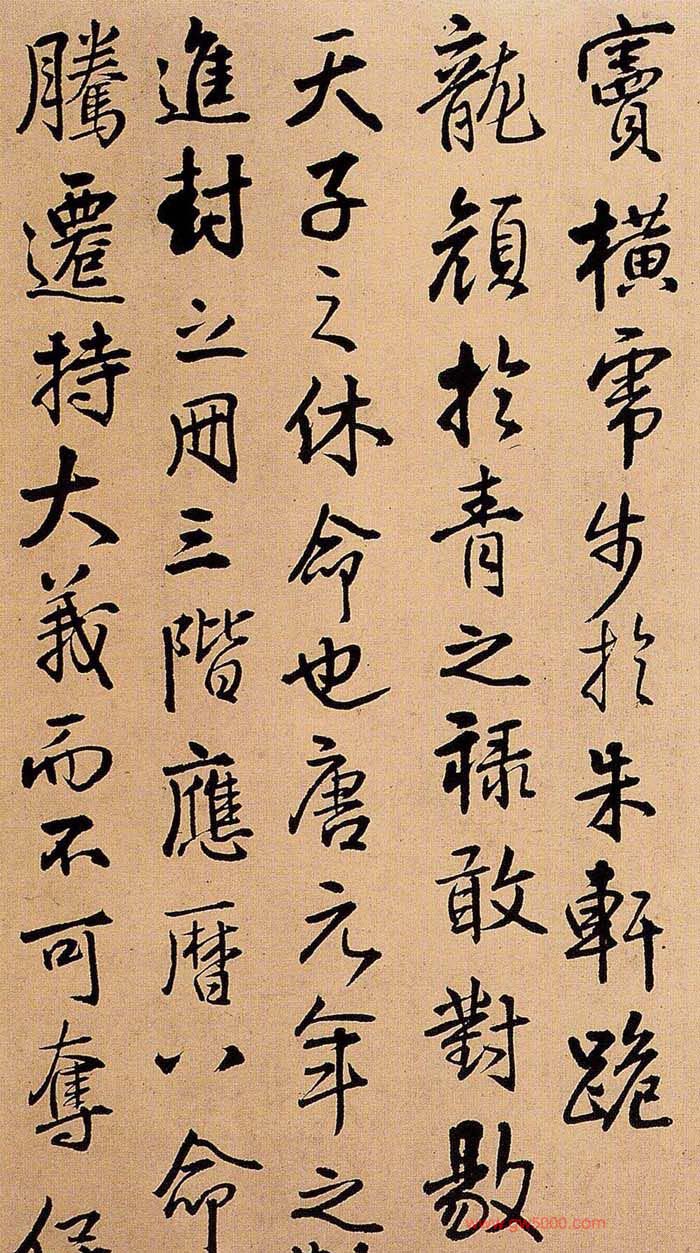 橫步於朱軒跪
龍顏於青之祿敢對敭
天子之休命也唐元年之
進封之冊三階應曆八命
騰遷持大義而不可奪
www.gw5000.com